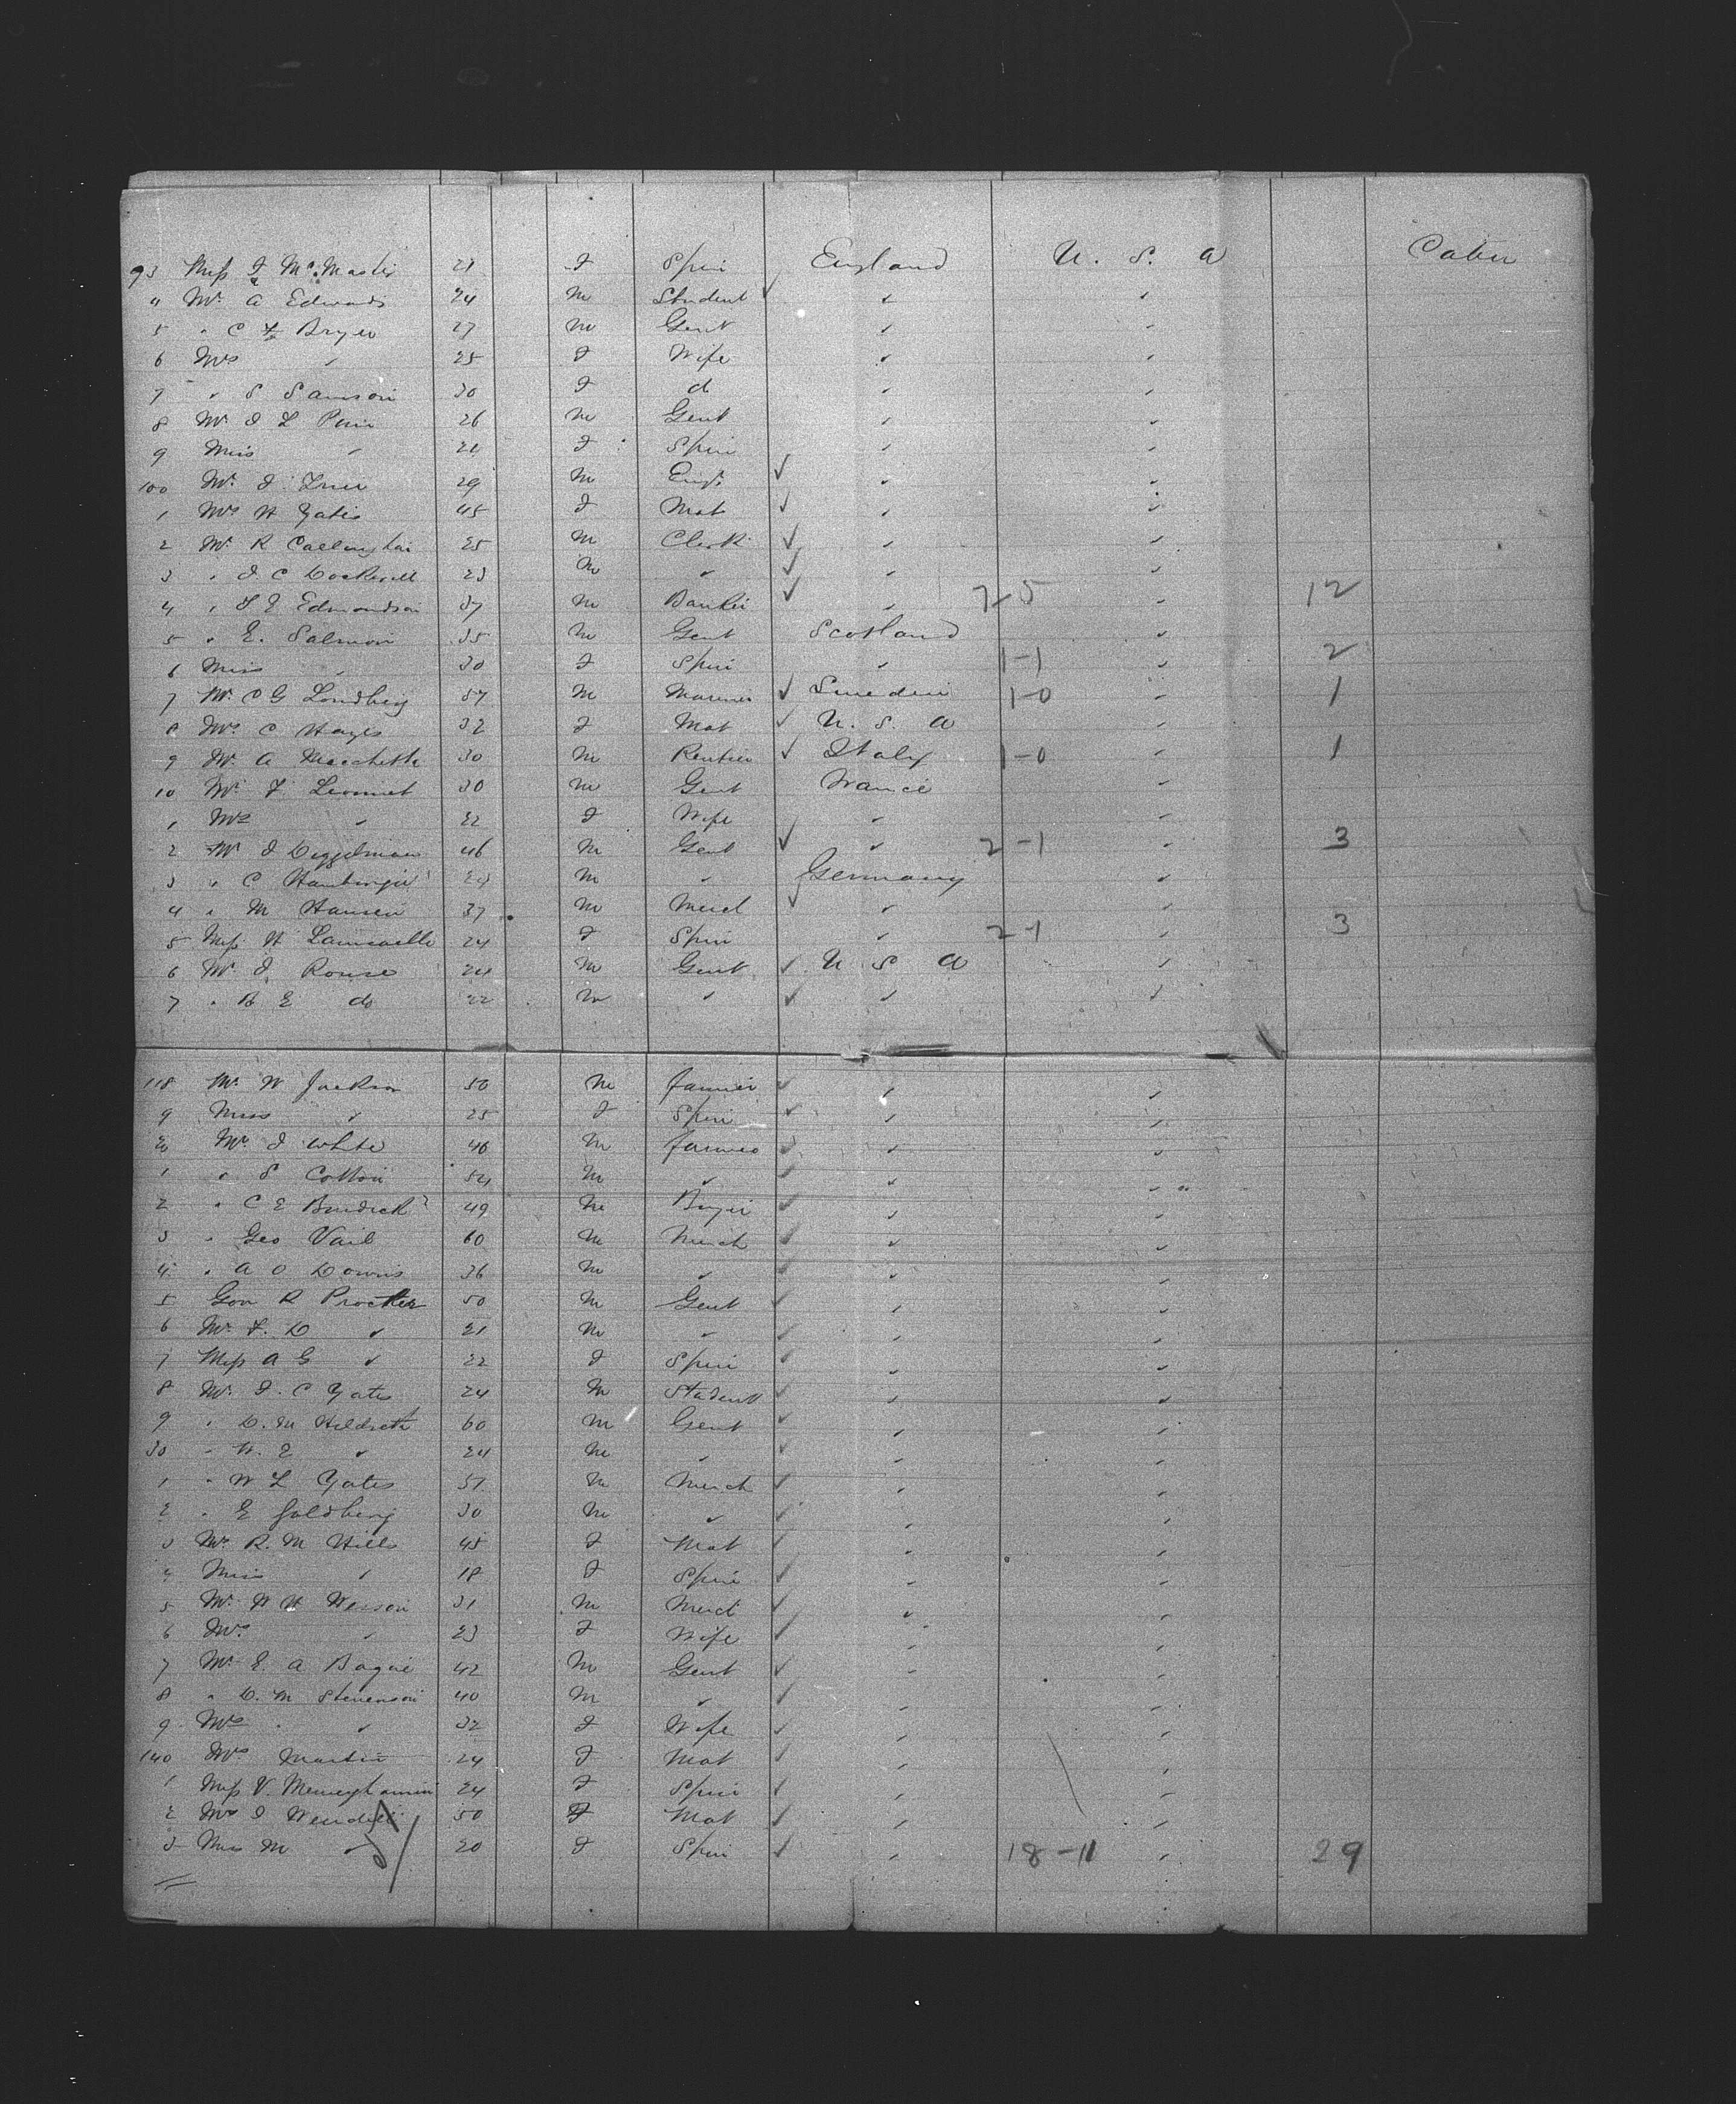 93 Miss J McMaster 21 F Spin England U. S. A Cabin
4 Mr A Edwards 24 M Student " "
5 " C F Bryer 27 M Gent " "
6 Mrs " 25 F Wife " "
7 " S Samson 30 F d " "
8 Mr J L 26 M Gent " "
9 Miss " F Spin " "
100 Mr J 29 M Engr " "
1 Mrs H Yates 45 F Mat " "
2 Mr R 25 M Clerk " "
3 " J C Cockerell 23 M " " "
4 " J E Edmondson 37 M Banker " 7-5 " 12
5 " E. Salmon 35 M Gent Scotland "
6 Miss " 30 F Spin " 1-1 " 2
7 Mr C G Lundberg 57 M Mariner Sweden 1-0 " 1
8 Mrs C Hayes 32 F Mat U. S. A "
9 Mr A 30 M Rentier Italy 1-0 " 1
10 Mr F. 30 M Gent France "
1 Mrs " 22 F Wife " "
2 Mr J 46 M Gent " 2-1 " 3
3 " C M " Germany "
4 " M Hansen 37 M Merch " "
5 Miss H 24 F Spin " 2-1 " 3
6 Mr J Rouse 24 M Gent U S A "
7 " B E do 22 M " " "
118 Mr W Jackson 50 M Farmer " "
9 Miss " 25 F Spin " "
20 Mr J White 46 M Farmer " "
1 " S Cotton 54 M " " "
2 " C E Burdick 49 M Buyer " "
3 " Geo Vail 60 M Merch " "
4 " A O Downs 36 M " " "
5 Gov R Procter 50 M Gent " "
6 Mr F. D " 21 M " " "
7 Miss A G " 22 F Spin " "
8 Mr J. C Yates 24 M Student " "
9 " D. M Hildreth 60 M Gent " "
30 " H. E " 24 M " " "
1 " W L Yates 51 M Merch " "
2 " E Goldberg 30 M " " "
3 Mrs R. M Hills 45 F Mat " "
4 Miss " 18 F Spin " "
5 Mr W H Wesson 31 M Merct " "
6 Mrs " 23 F Wife " "
7 Mr E. A 42 M Gent " "
8 " D. M Stevenson 40 M " " "
9 Mrs " 32 F Wife " "
140 Mrs Martin 24 F Mat " "
1 Miss V. 24 F Spin " "
2 Mrs J Wendell 50 F Mat " "
3 Miss M " 20 F Spin " 18-11 " 29